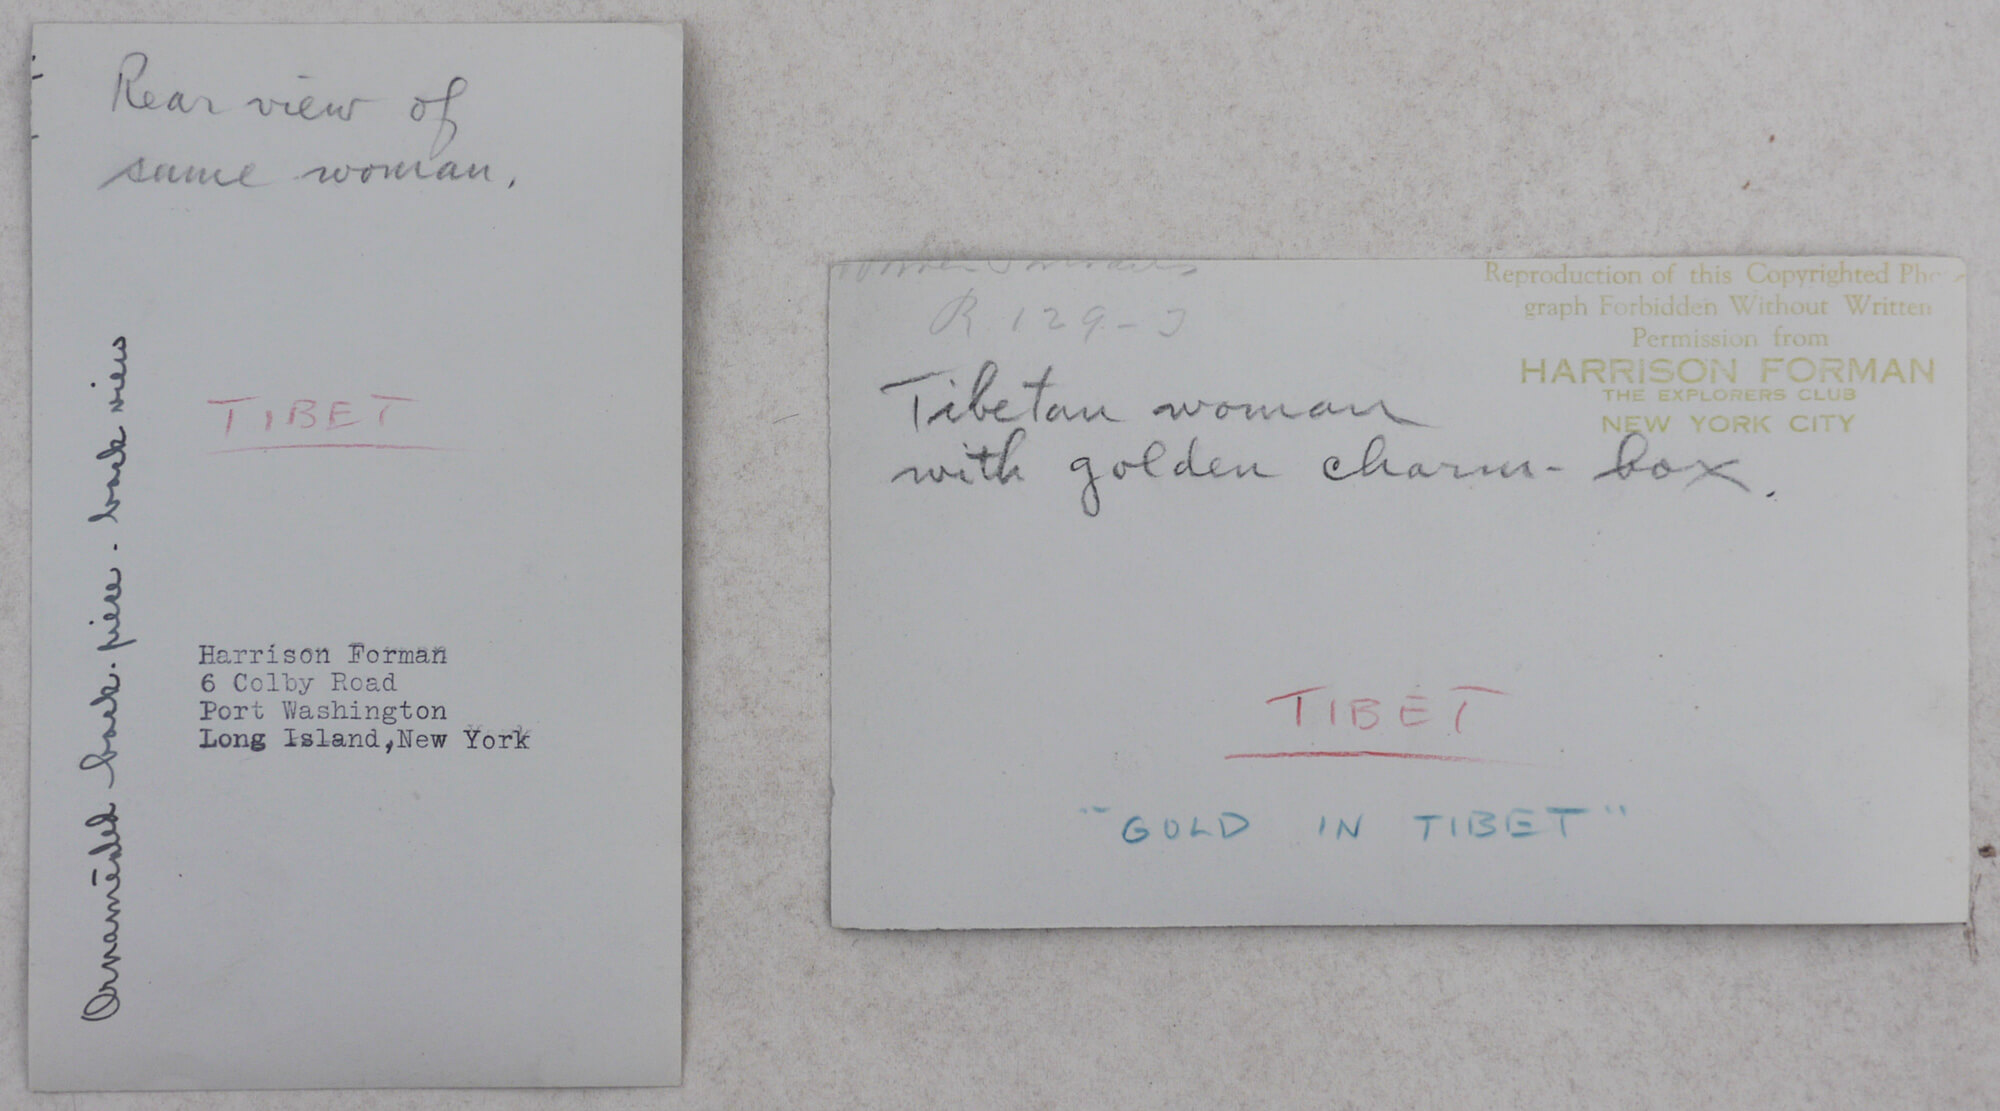 Rear view of
same woman.
TIBET
Ornamented back-piece. back view
Harrison Forman
6 Colby Road
Port Washington
Long Island,New York
R 129-
Reproduction of this Copyrighted Pho
graph Forbidden Without Written
Permission from
HARRISON FORMAN
THE EXPLORERS CLUB
NEW YORK CITY
Tibetan woman
with golden charm-box.
TIBET
"GOLD IN TIBET"